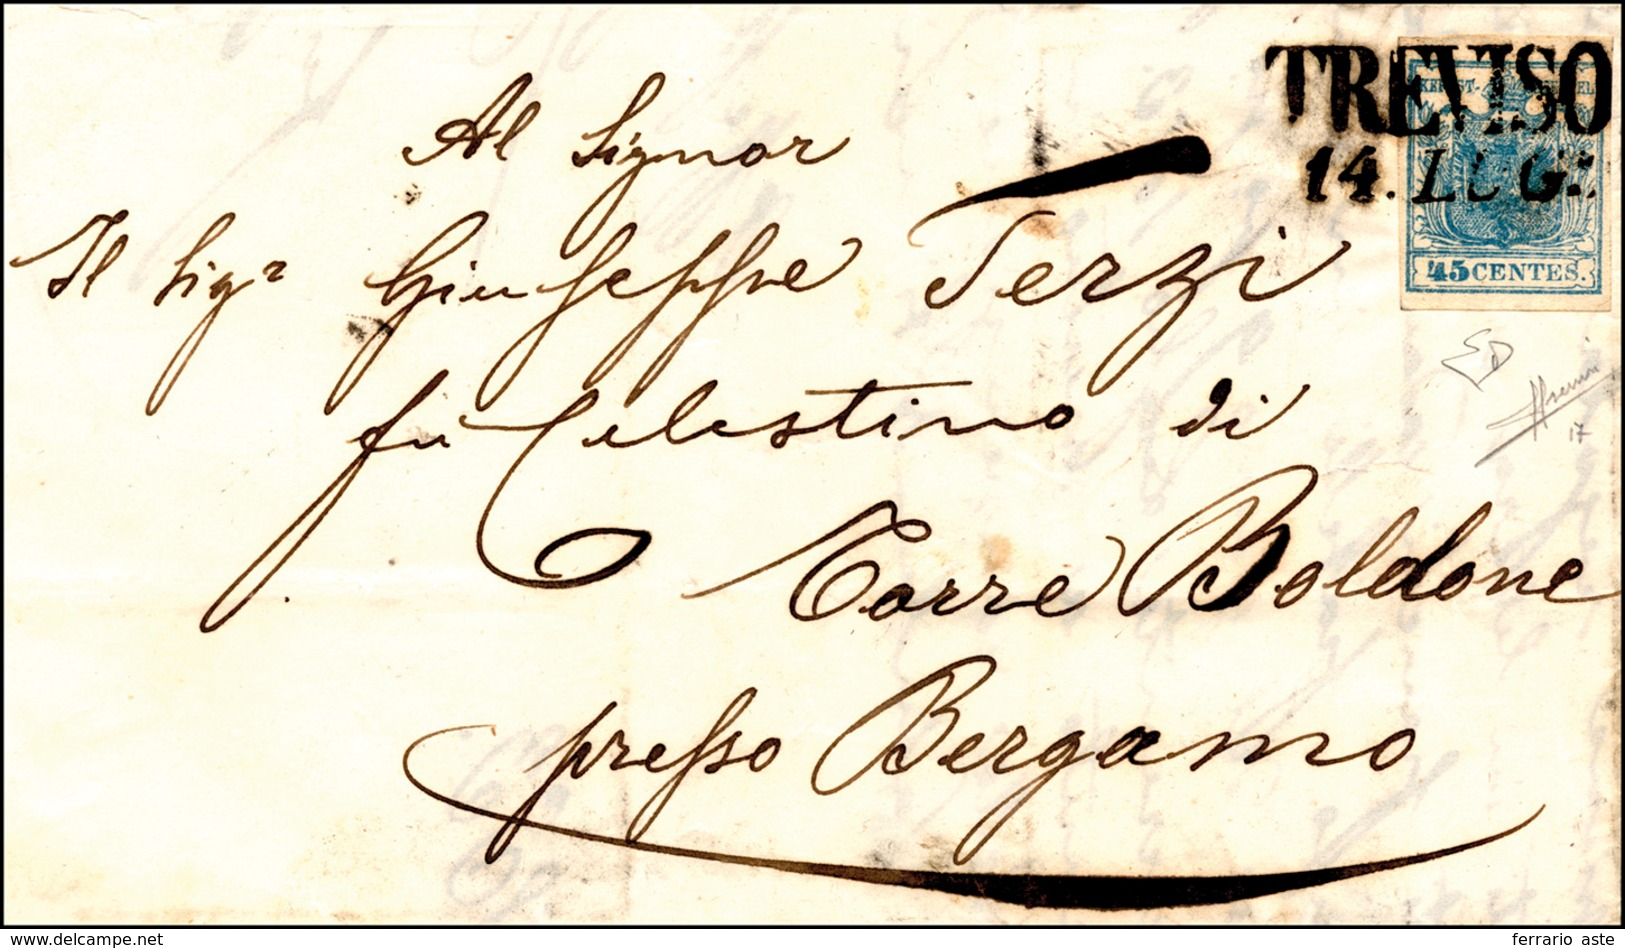 TREVISO
14. LUG.
45 CENTES.
Al Signor
Il Sig.r Giuseppe Terzi
fù Celestino di
Torre Boldone
presso Bergamo
ED
17
www.delcampe.net
ferrario aste